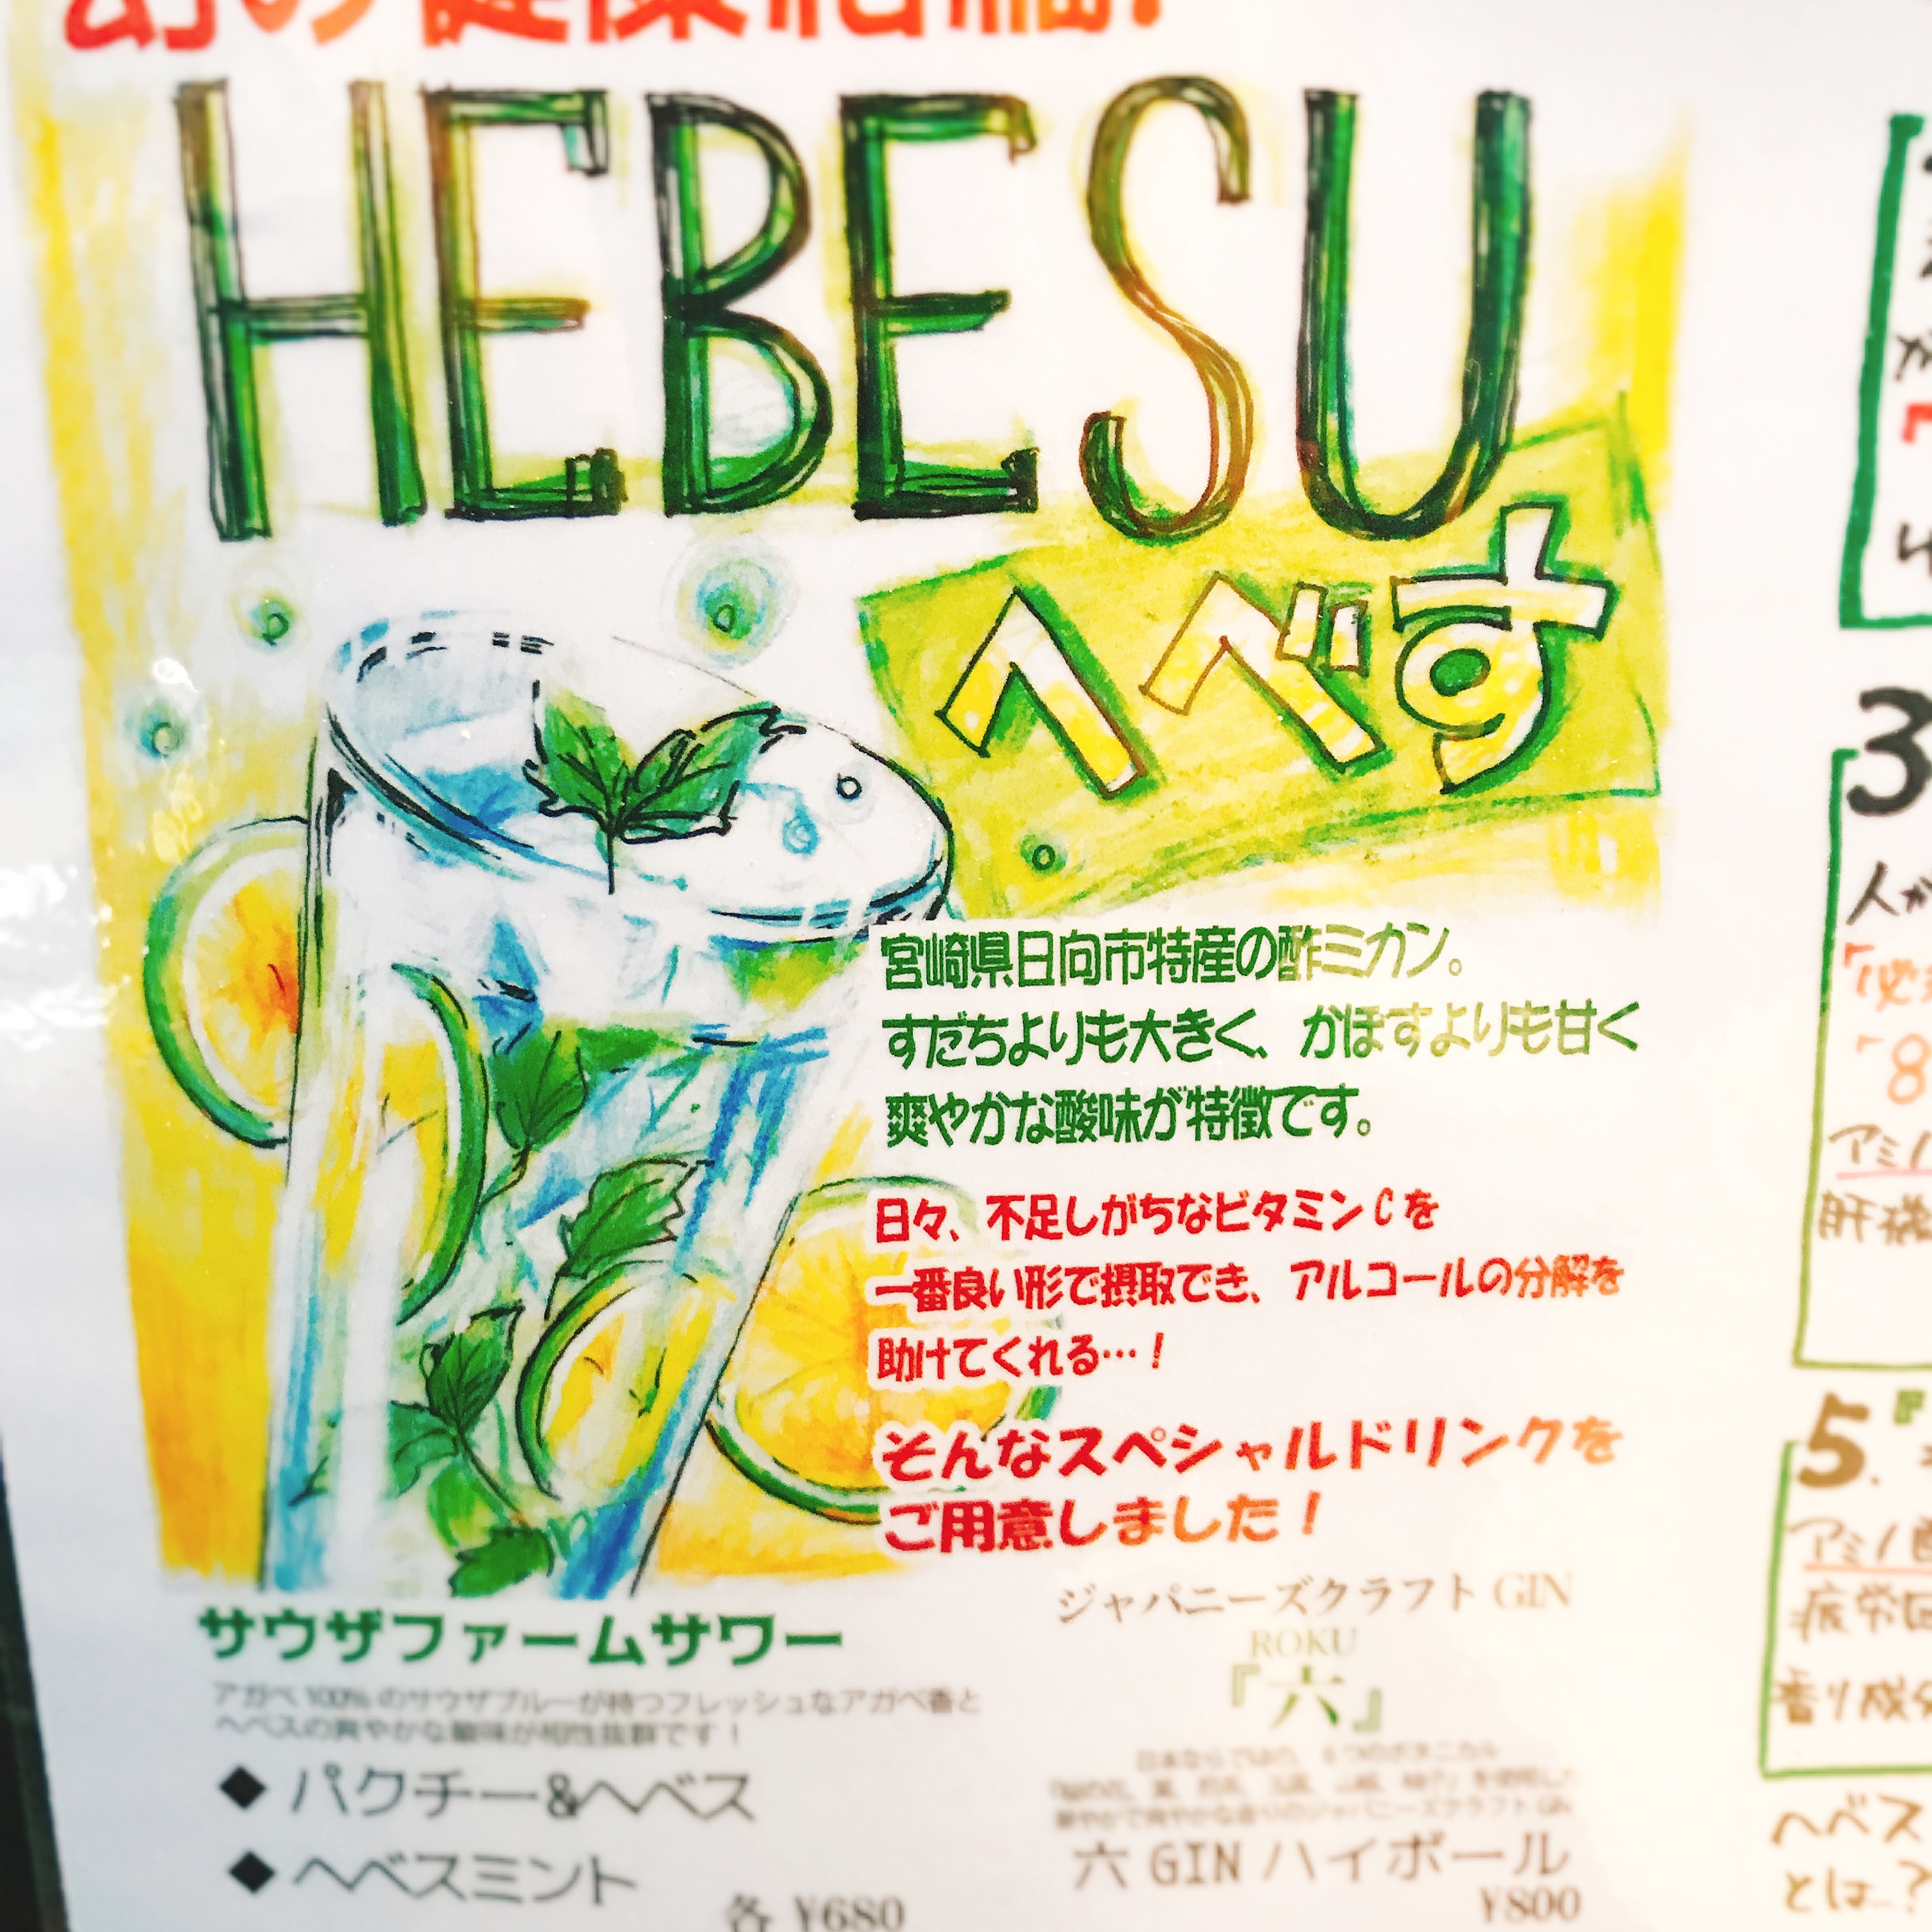 幻の健康柑橘!
HEBESU
へべす
宮崎県日向市特産の酢ミカン。
すだちよりも大きく、かぼすよりも甘く
爽やかな酸味が特徴です。
日々、不足しがちなビタミンCを
一番良い形で摂取でき、アルコールの分解を
助けてくれる…!
そんなスペシャルドリンクを
ご用意しました!
サウザファームサワー
アガベ100%のサウザブルーが持つフレッシュなアガベ香と
ヘベスの爽やかな酸味が相性抜群です!
◆ パクチー&ヘベス
◆ ヘベスミント
各 ¥680
ジャパニーズクラフト GIN
ROKU
『六』
日本ならではの、6つのボタニカル
六 GIN ハイボール
¥800
3
人が
アミノ
肝機
5.
アミノ酸
疲労回
香り成分
ヘベス
とは…?